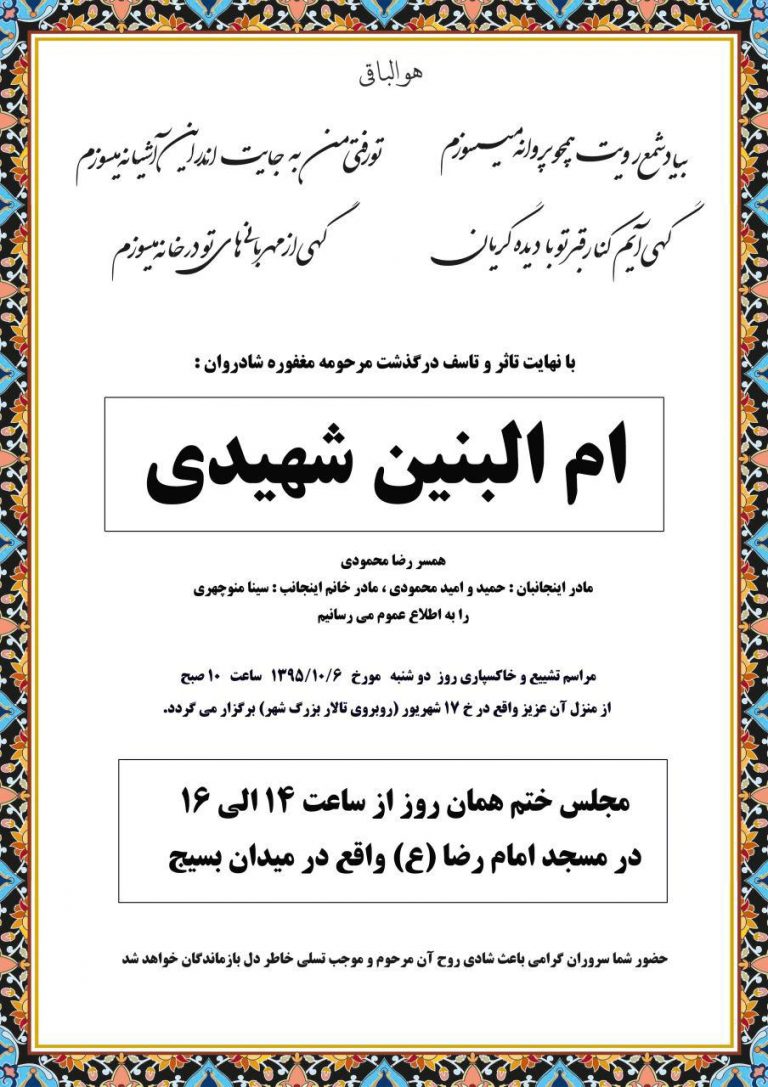 هوالباقی
بیاد شمع رویت همچو پروانه میسوزم تو رفتی من به جایت اندر این آشیانه میسوزم
گهی آیم کنار قبر تو با دیده گریان گهی از مهربانی های تو در خانه میسوزم
با نهایت تاثر و تاسف درگذشت مرحومه مغفوره شادروان :
ام البنین شهیدی
همسر رضا محمودی
مادر اینجانبان : حمید و امید محمودی ، مادر خانم اینجانب : سینا منوچهری
را به اطلاع عموم می رسانیم
مراسم تشییع و خاکسپاری روز دو شنبه مورخ ۱۳۹۵/۱۰/۶ ساعت ۱۰ صبح
از منزل آن عزیز واقع در خ ۱۷ شهریور (روبروی تالار بزرگ شهر) برگزار می گردد.
مجلس ختم همان روز از ساعت ۱۴ الی ۱۶
در مسجد امام رضا (ع) واقع در میدان بسیج
حضور شما سروران گرامی باعث شادی روح آن مرحوم و موجب تسلی خاطر دل بازماندگان خواهد شد